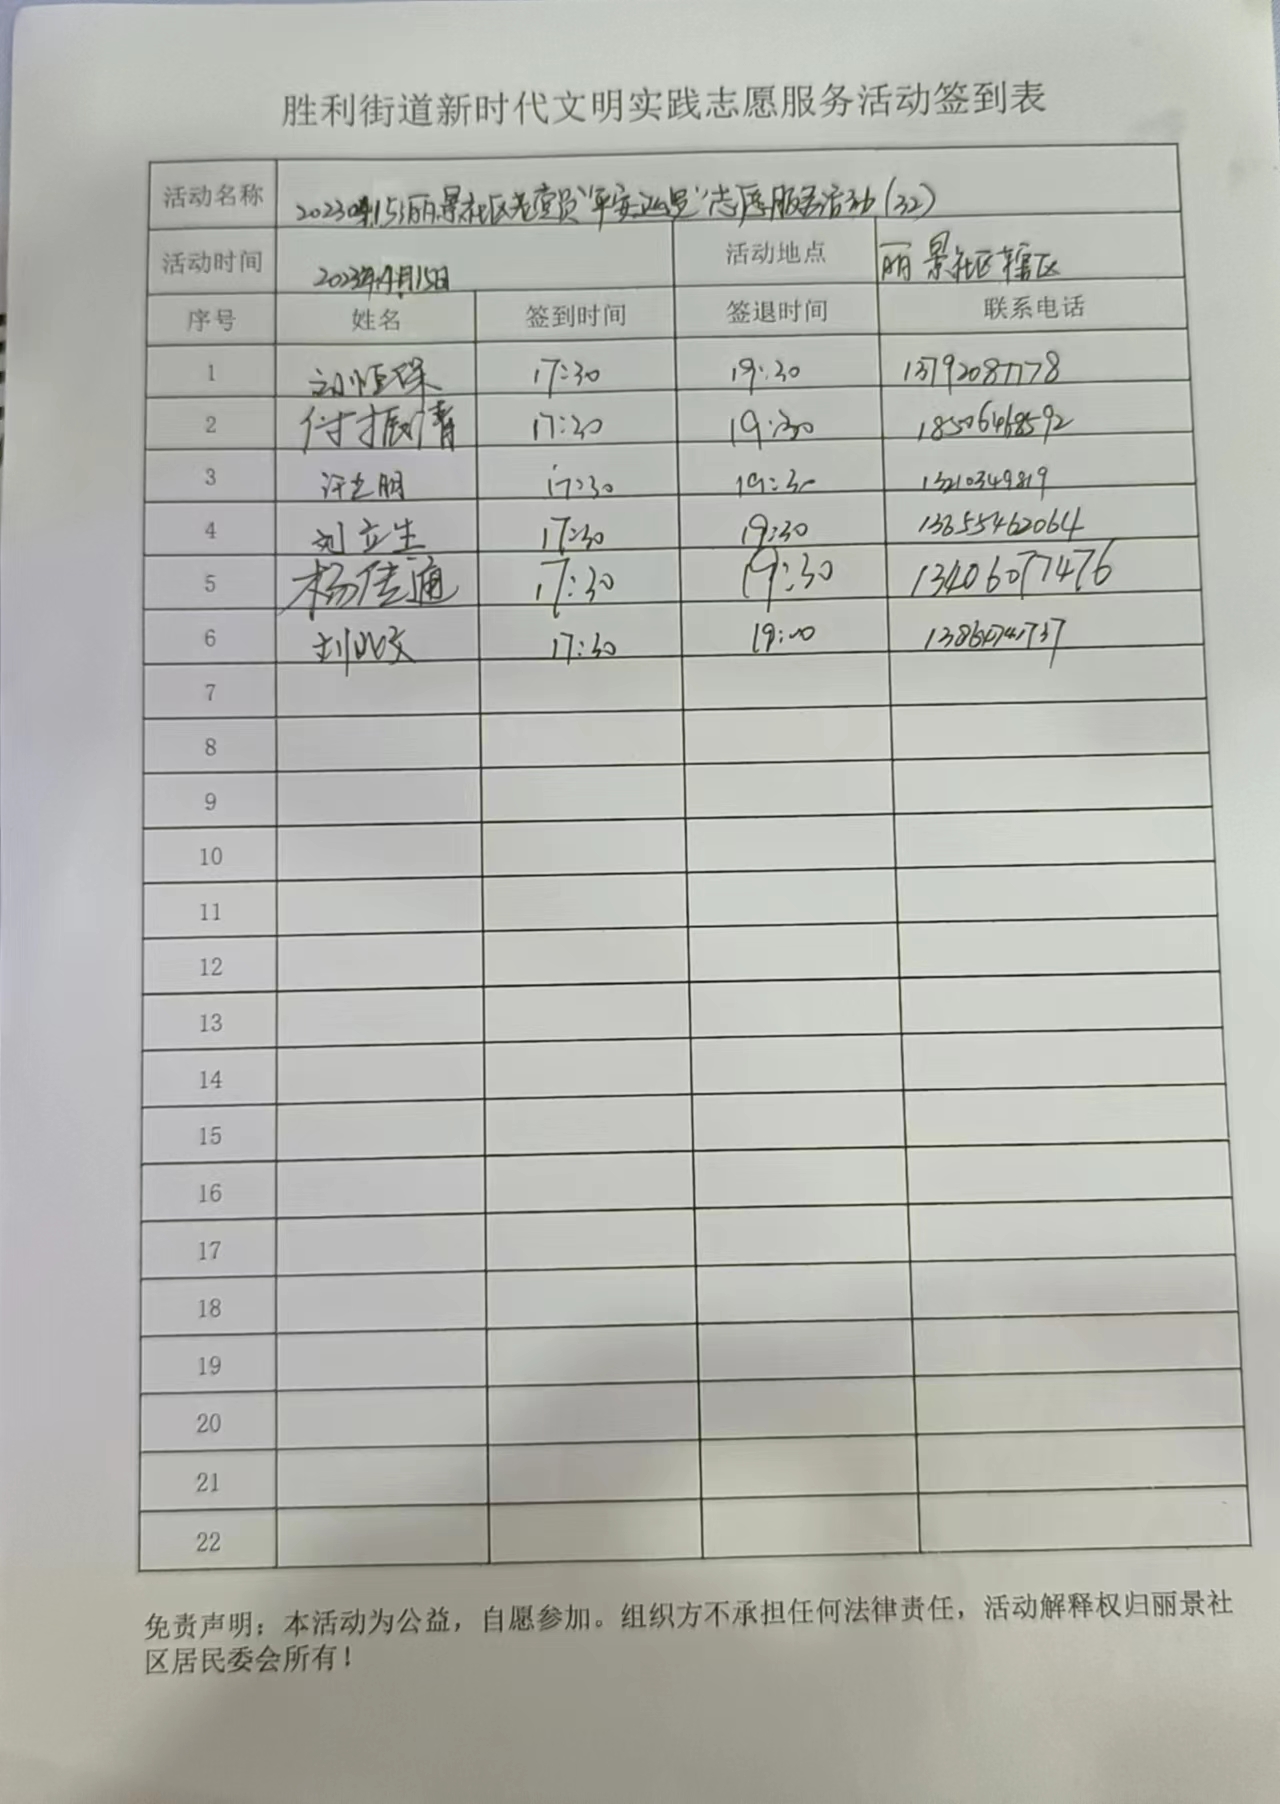 胜利街道新时代文明实践志愿服务活动签到表
活动名称 丽景社区老党员“平安巡逻”志愿服务活动(32)
活动时间 2023年4月15日 活动地点 丽景社区辖区
序号 姓名 签到时间 签退时间 联系电话
1 刘恒珠 17:30 19:30 13792087778
2 付振清 17:30 19:30 18506468592
3 17:30 19:30 13210349819
4 刘立生 17:30 19:30 13655462064
5 杨佳通 17:30 19:30 13406077476
6 17:30
7
8
9
10
11
12
13
14
15
16
17
18
19
20
21
22
免责声明：本活动为公益，自愿参加。组织方不承担任何法律责任，活动解释权归丽景社
区居民委会所有！